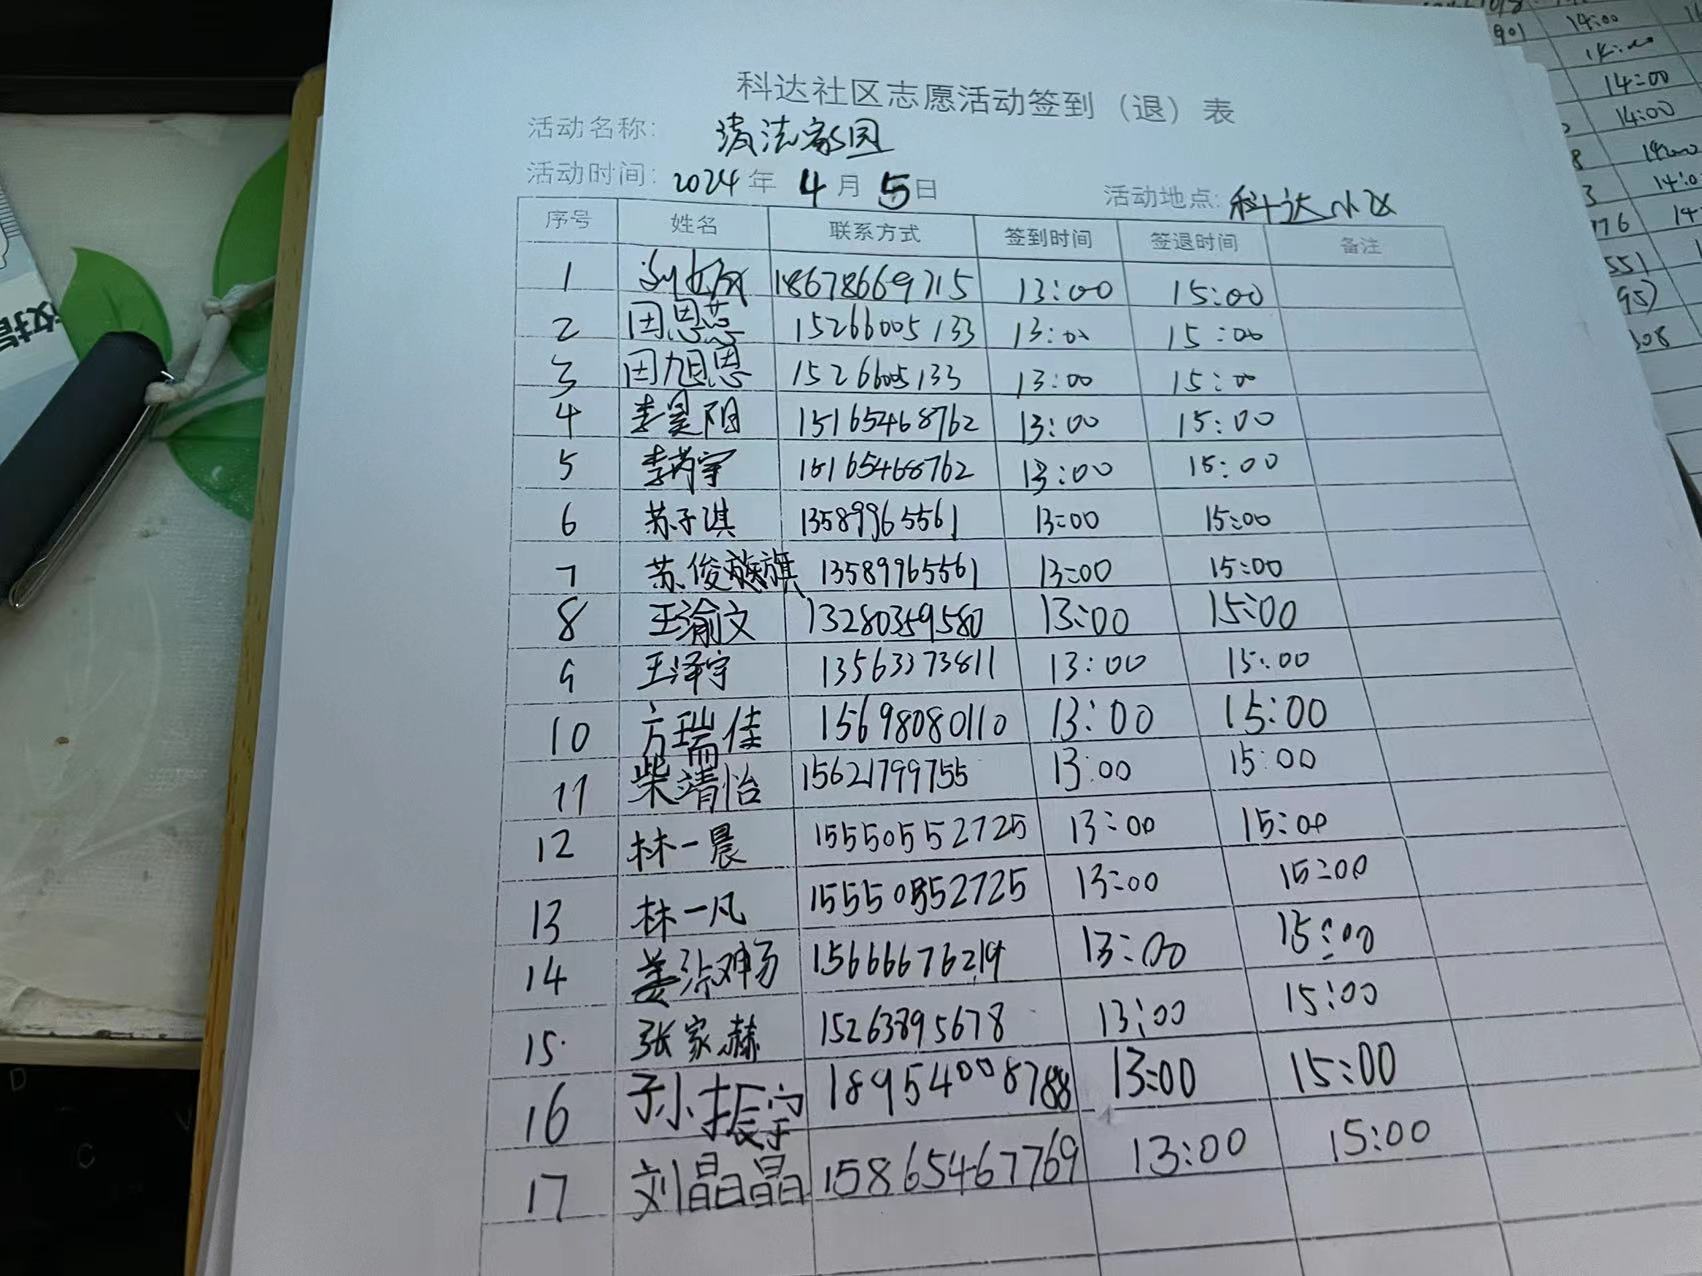 科达社区志愿活动签到（退）表
活动名称: 清洁家园
活动时间: 2024年 4月 5日 活动地点: 科达小区
序号 姓名 联系方式 签到时间 签退时间 备注
1 18678669715 13:00 15:00
2 田恩慈 15266005133 13:00 15:00
3 田旭恩 15266005133 13:00 15:00
4 李昊阳 15165468762 13:00 15:00
5 李芮宇 15165468762 13:00 15:00
6 苏子淇 13589965561 13:00 15:00
7 苏俊旗 13589965561 13:00 15:00
8 王渝文 13280359580 13:00 15:00
9 王泽宇 13563373811 13:00 15:00
10 方瑞佳 15698080110 13:00 15:00
11 柴靖怡 15621799755 13:00 15:00
12 林一晨 15550552725 13:00 15:00
13 林一凡 15550552725 13:00 15:00
14 姜 15666676219 13:00 15:00
15. 张家赫 15263895678 13:00 15:00
16 孙振宇 18954008788 13:00 15:00
17 刘晶晶 15865467769 13:00 15:00
901 14:00
14:00
14:00
14:00
14:00
776
551